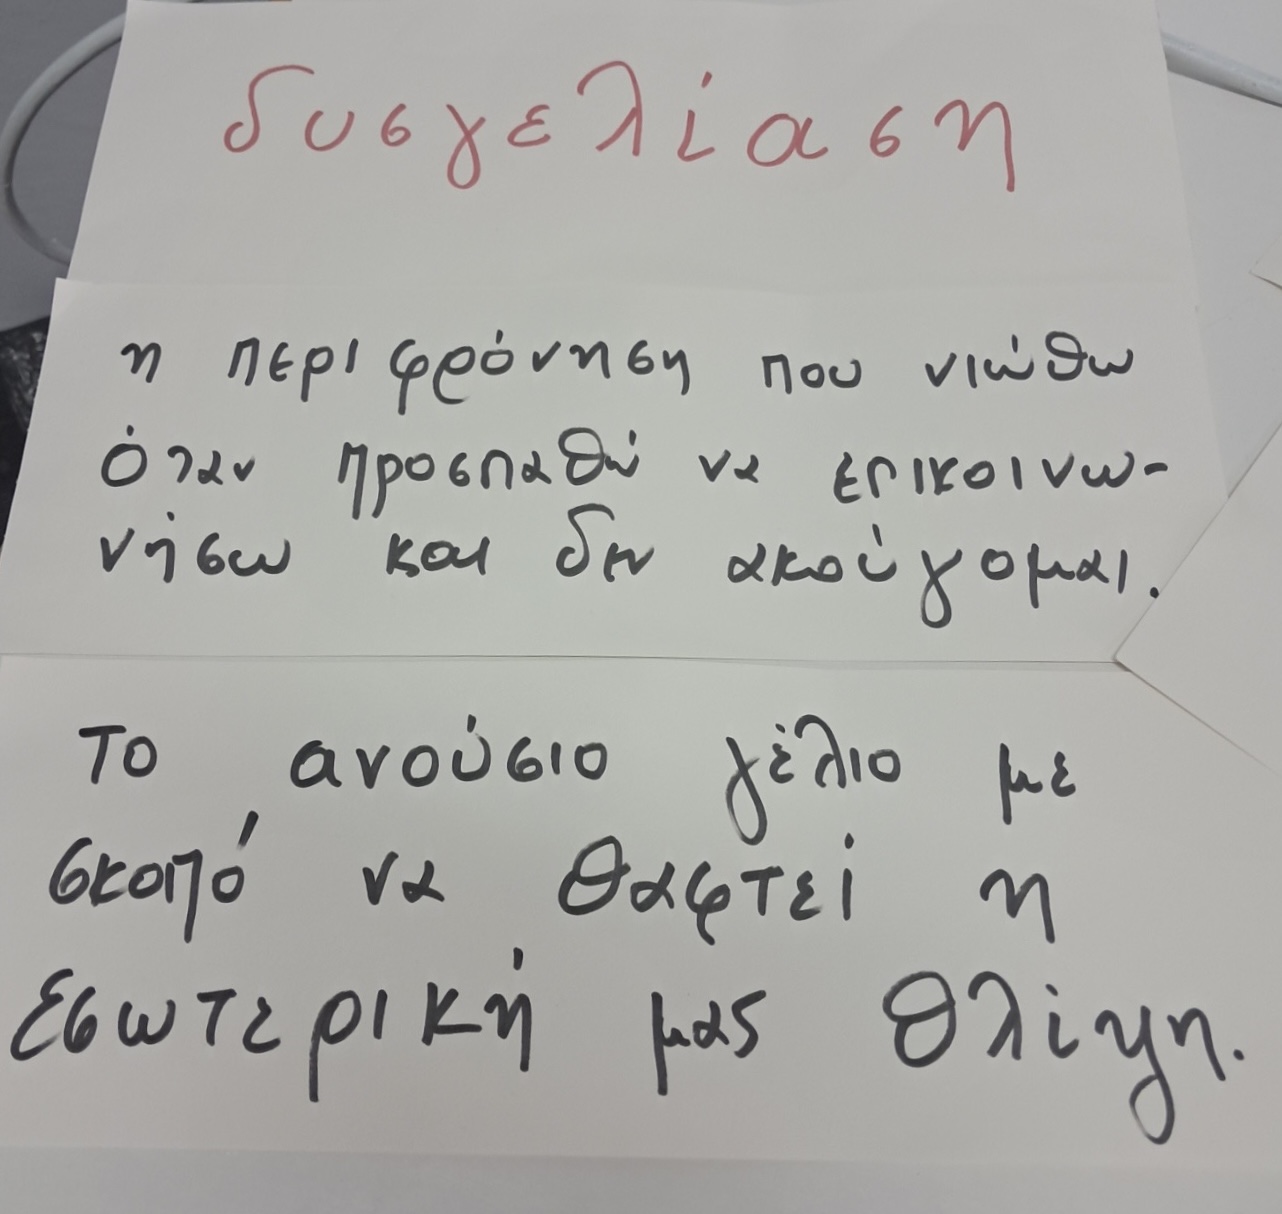 δυσγελίαση
η περιφρόνηση που νιώθω
όταν προσπαθώ να επικοινω-
νήσω και δεν ακούγομαι.
Το ανούσιο γέλιο με
σκοπό να θαφτεί η
εσωτερική μας θλίψη.